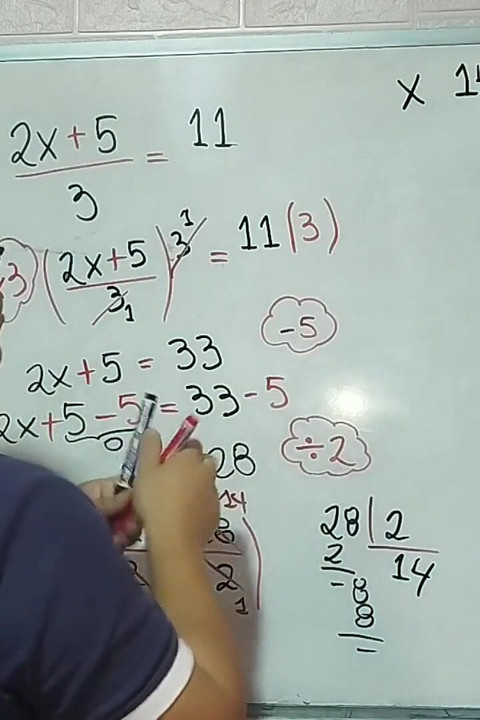 x 1
2x+5 = 11
3
3 (2x+5) 3 1 = 11(3)
3 1
-5
2x+5 = 33
2x+5-5 = 33-5
0
28 ÷2
14
8
2
1
28 | 2
2 14
08
8